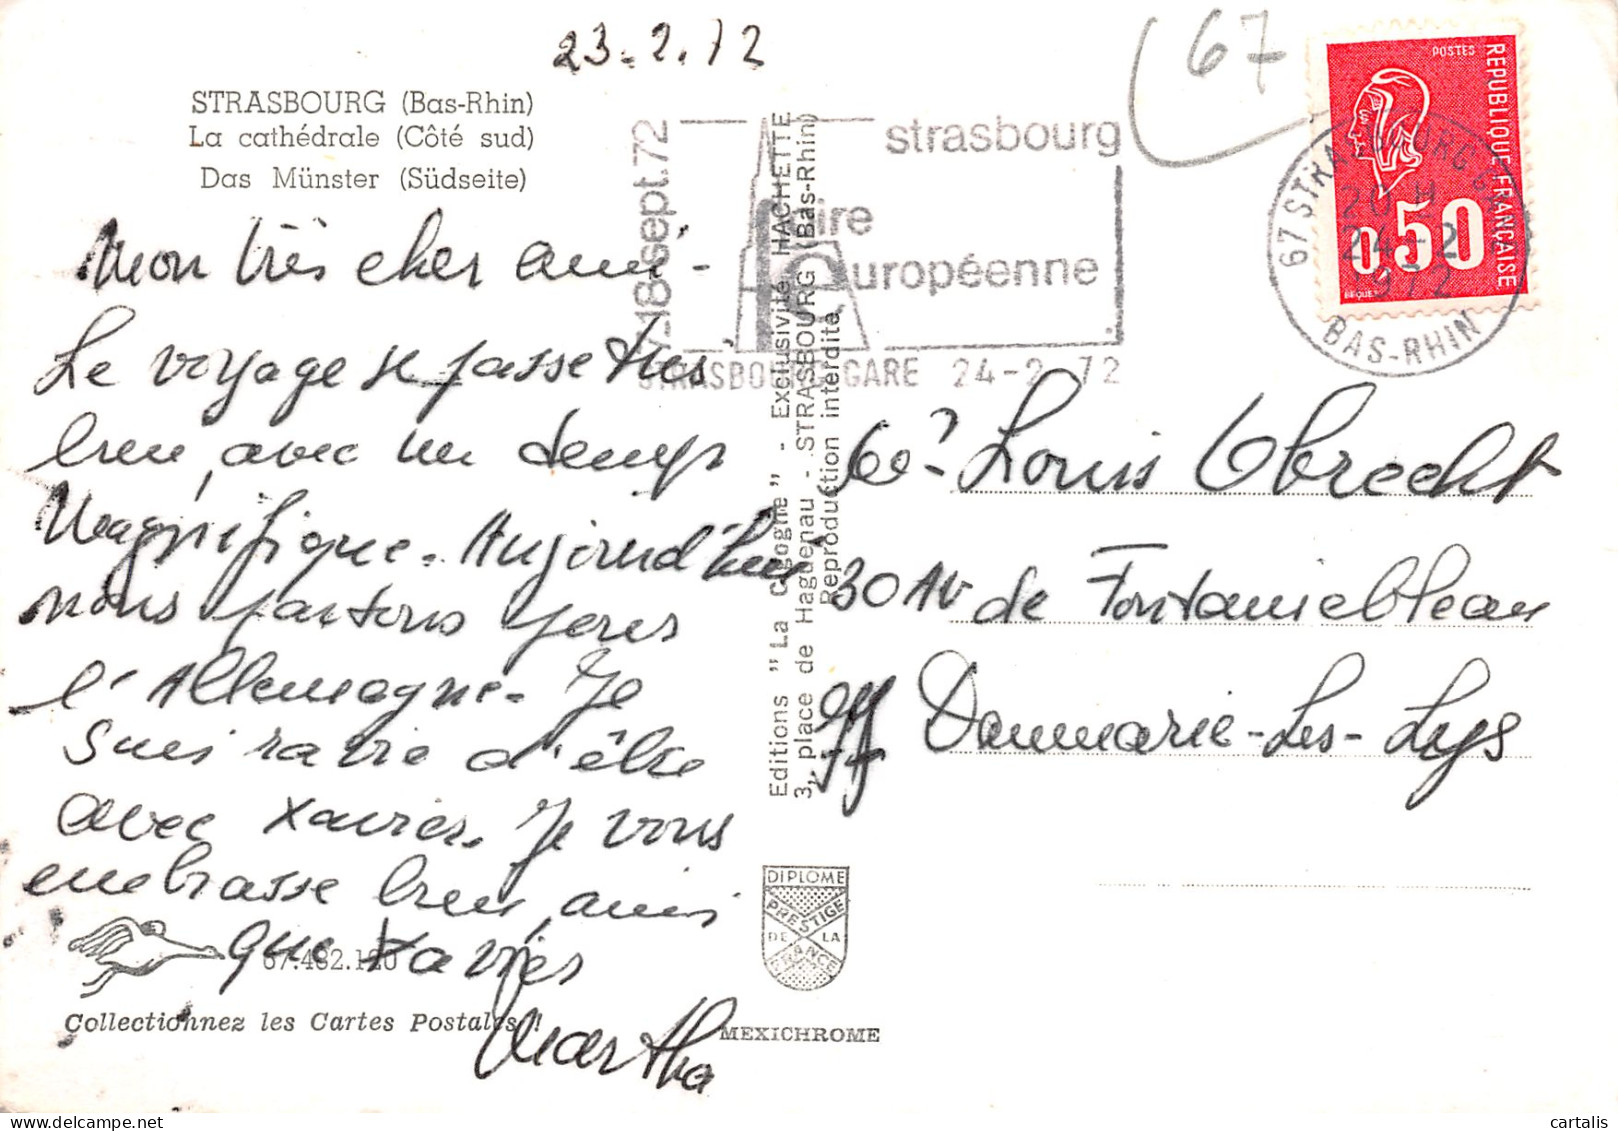 23.2.72
67
STRASBOURG (Bas-Rhin)
La cathédrale (Côté sud)
Das Münster (Südseite)
Mon très cher ami -
Le voyage se passe très
bien, avec un temps
magnifique. Aujourd'hui
nous partons vers
l'Allemagne. Je
suis ravie d'être
avec Xavier. Je vous
embrasse bien, ainsi
que Xavier
Martha
67.482.120
Collectionnez les Cartes Postales !
Editions "La Cigogne" - Exclusivité HACHETTE
3, place de Haguenau - STRASBOURG (Bas-Rhin)
Reproduction interdite
DIPLOME
PRESTIGE
DE LA
FRANCE
MEXICHROME
18 sept. 72
strasbourg
foire
européenne
STRASBOURG GARE 24-2 72
POSTES
REPUBLIQUE FRANÇAISE
0,50
BEQUET
67 STRASBOURG GARE
20 H
24-2
1972
BAS-RHIN
Louis Obrecht
30 Av de Fontainebleau
77 Dammarie-Les-Lys